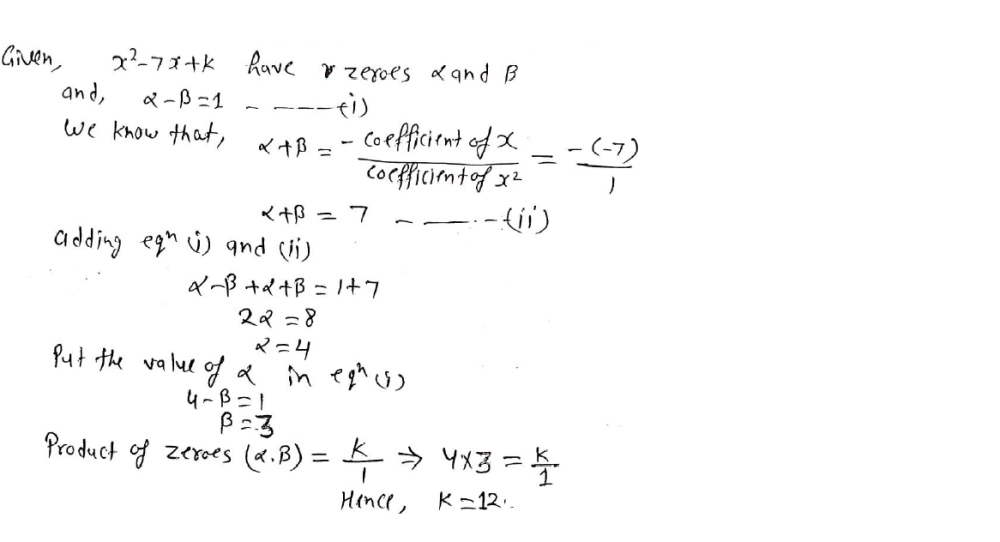 Given, x²-7x+k have zeroes α and β
and, α-β=1 - ----(i)
We know that, α+β = - coefficient of x / coefficient of x² = -(-7) / 1
α+β = 7 - ---- -(ii)
adding eqⁿ (i) and (ii)
α-β+α+β = 1+7
2α = 8
α = 4
Put the value of α in eqⁿ (i)
4-β=1
β=3
Product of zeroes (α.β) = K/1 ⇒ 4×3 = K/1
Hence, K=12.